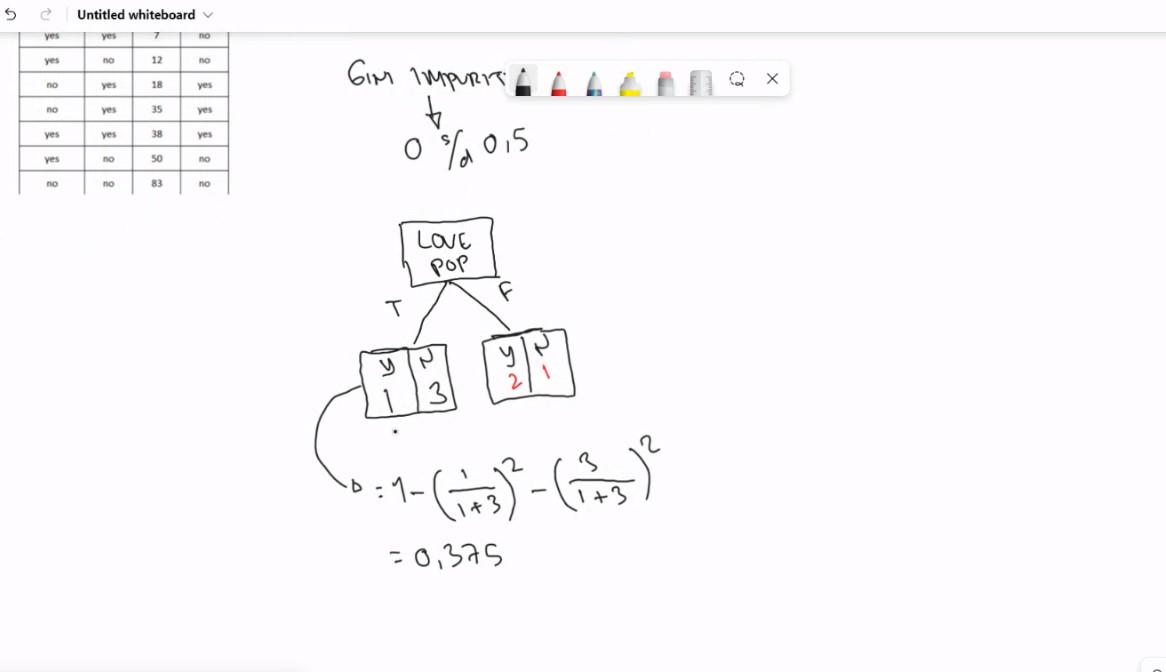 Untitled whiteboard
yes yes 7 no
yes no 12 no
no yes 18 yes
no yes 35 yes
yes yes 38 yes
yes no 50 no
no no 83 no
GINI IMPURIT
0 s/d 0,5
LOVE
POP
T F
Y N Y N
1 3 2 1
= 1 - (1/1+3)² - (3/1+3)²
= 0,375